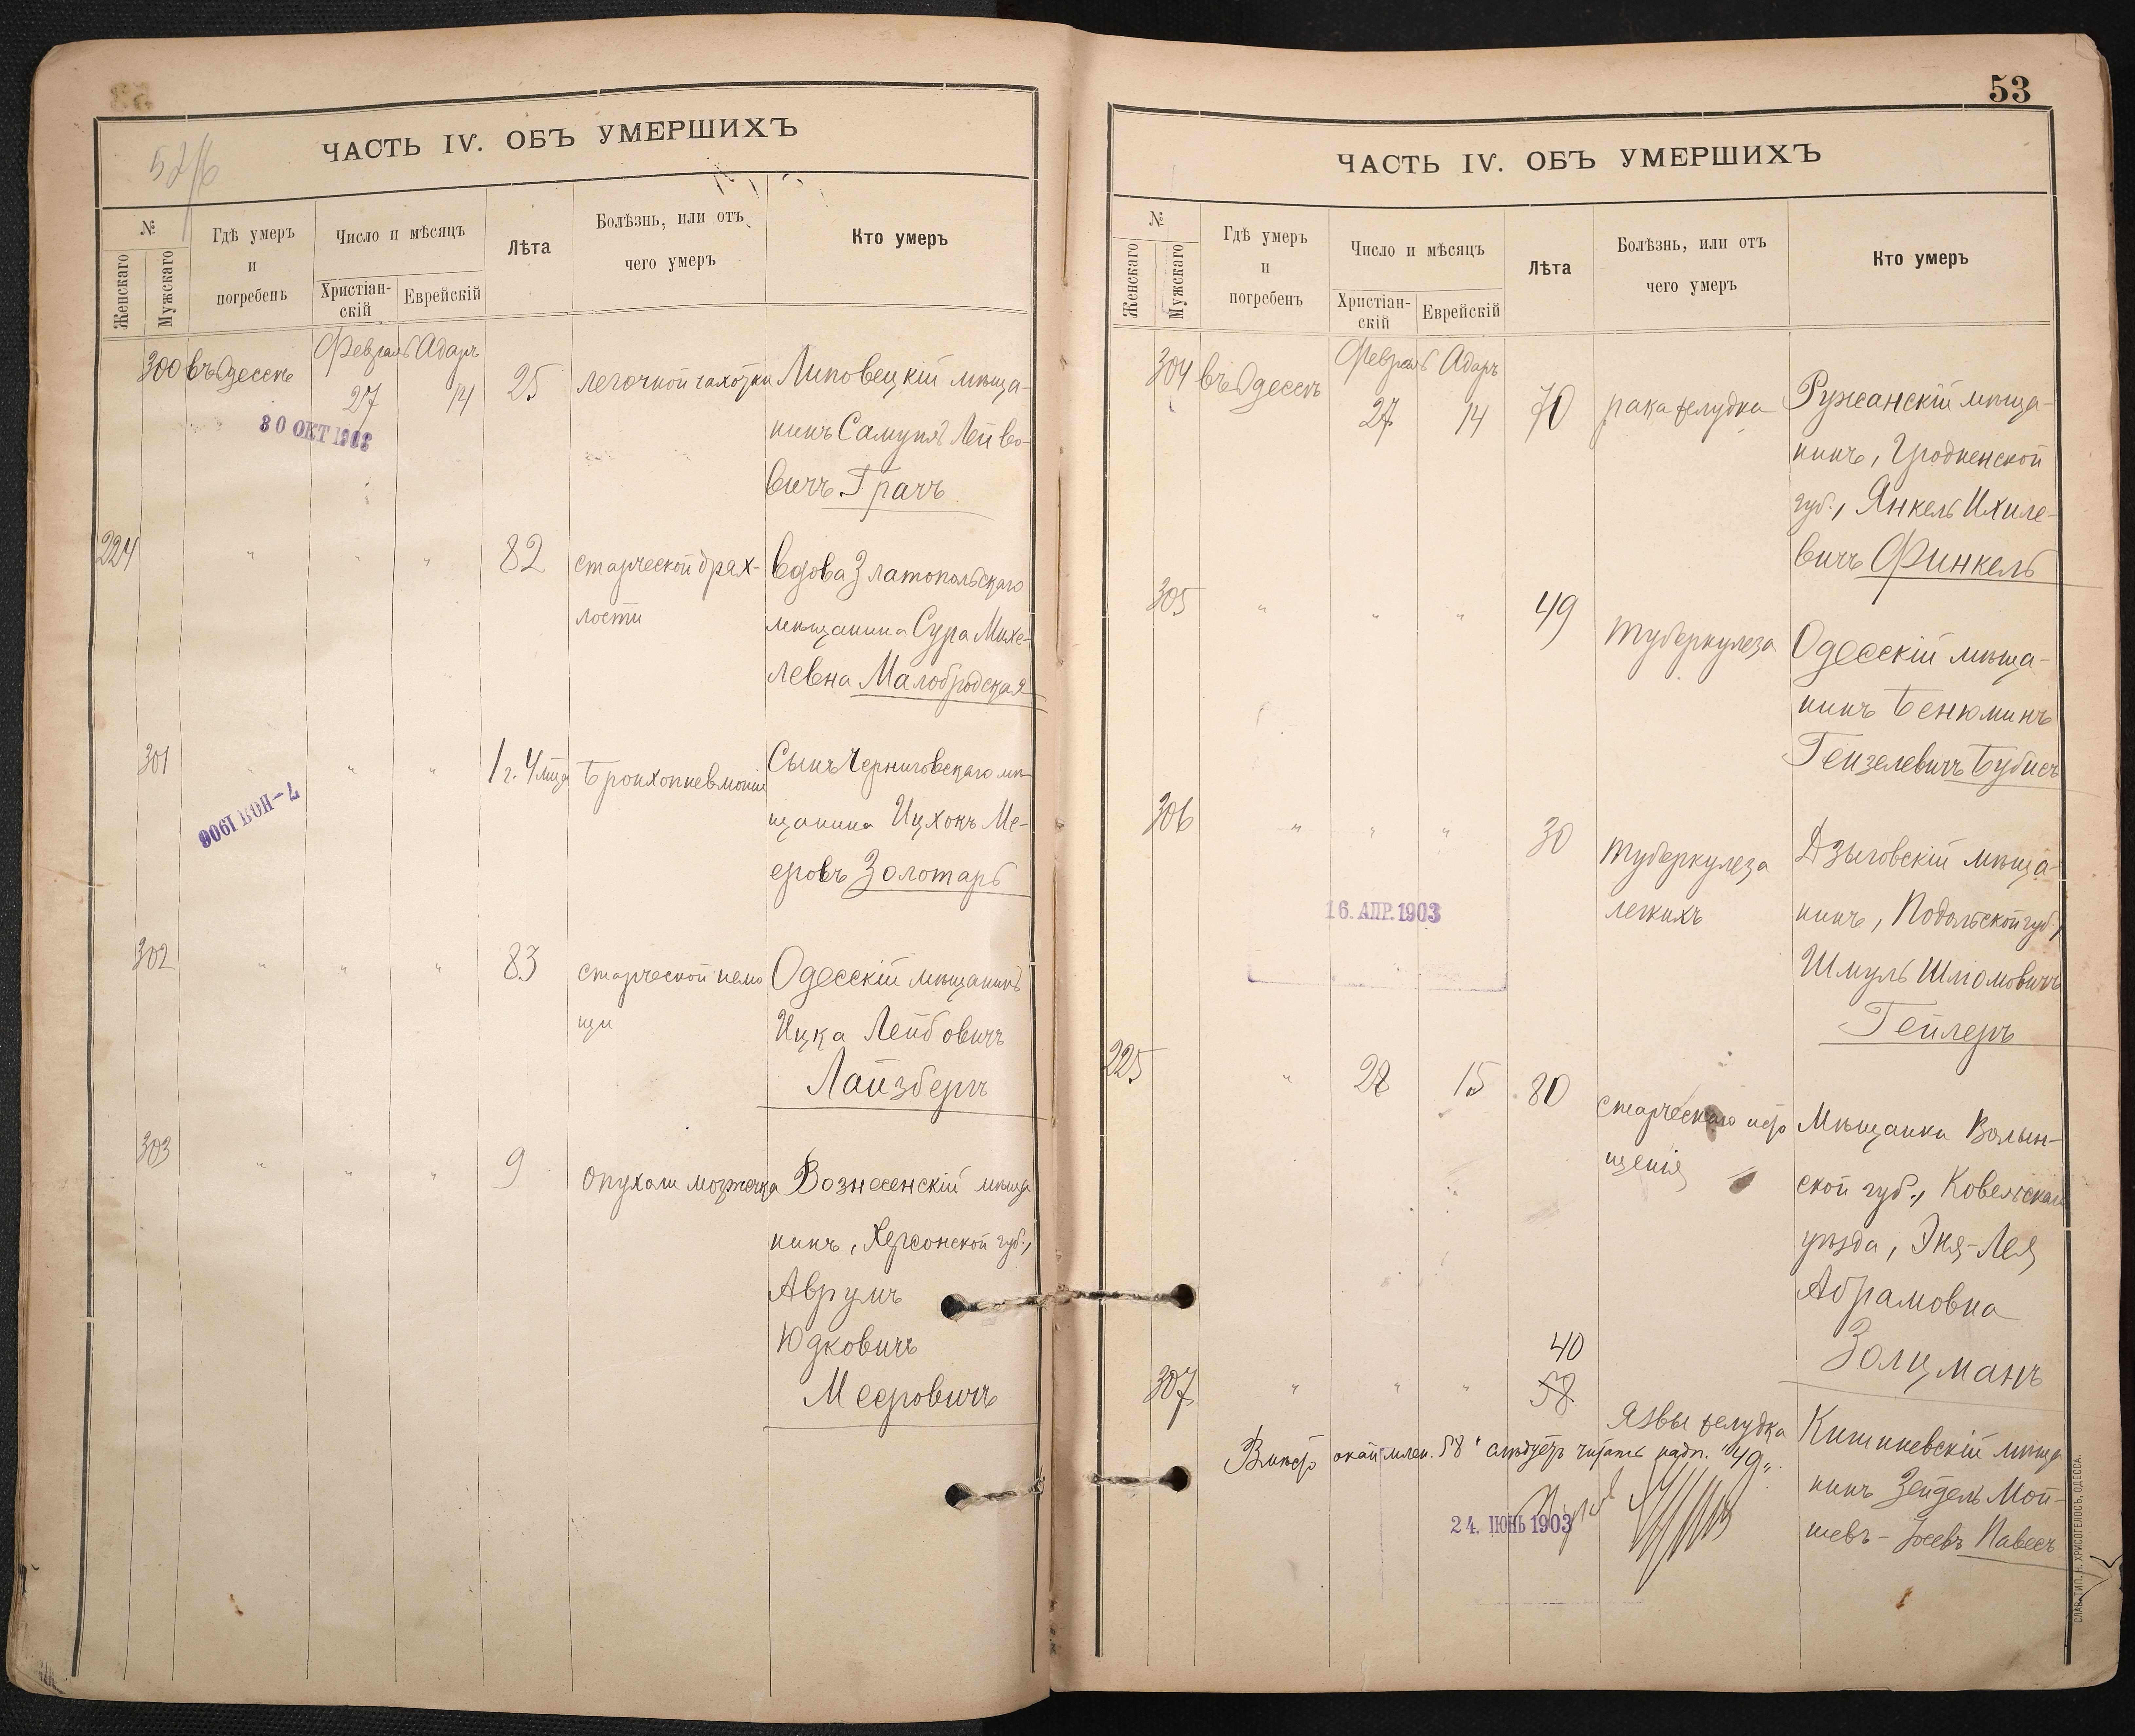 ЧАСТЬ IV. ОБЪ УМЕРШИХЪ
№
Женскаго
Мужскаго
Гдѣ умеръ
и
погребенъ
Число и мѣсяцъ
Христіан-
скій
Еврейскій
Лѣта
Болѣзнь, или отъ
чего умеръ
Кто умеръ
300
въ Одессѣ
Февраль
27
Адаръ
14
25
легочной чахотки
Липовецкій мѣща-
нинъ Самуилъ Лейбо-
вичъ Грачъ
30 ОКТ 1903
224
"
"
"
82
старческой драх-
лости
вдова Златопольскаго
мѣщанина Сура Михе-
левна Малобродская
301
"
"
1 г. 4 мца
Бронхопневмоніи
Сынъ Черниговскаго мѣ-
щанина Ицхокъ Ме-
еровъ Золотарь
7-НОЯ 1906
302
"
"
"
83
старческой немо
щи
Одесскій мѣщанинъ
Ицка Лейбовичъ
Лайзбергъ
303
"
"
"
9
Опухоли мозжечка
Вознесенскій мѣща
нинъ, Херсонской губ.,
Аврумъ
Юдковичъ
Мееровичъ
53
ЧАСТЬ IV. ОБЪ УМЕРШИХЪ
№
Женскаго
Мужскаго
Гдѣ умеръ
и
погребенъ
Число и мѣсяцъ
Христіан-
скій
Еврейскій
Лѣта
Болѣзнь, или отъ
чего умеръ
Кто умеръ
304
въ Одессѣ
Февраль
27
Адаръ
14
70
рака желудка
Ружанскій мѣща-
нинъ, Гродненской
губ., Янкель Ихиле-
вичъ Финкель
305
"
"
"
49
туберкулеза
Одесскій мѣща-
нинъ Бенюминъ
Гейзелевичъ Бубисъ
306
"
"
"
30
туберкулеза
легкихъ
Дзыговскій мѣща-
нинъ, Подольской губ.,
Шмуль Шломовичъ
Гейлеръ
16. АПР. 1903
225
"
28
15
80
старческаго исто
щенія
Мѣщанка Волын-
ской губ., Ковельскаго
уѣзда, Эня-Лея
Абрамовна
Золцманъ
307
"
"
"
40
58
Язвы желудка
Кишиневскій мѣща
нинъ Зейдель Мой-
шевъ-Іосевъ Павесъ
Вмѣсто слѣдуетъ читать надп. "40".
24. ІЮНЬ 1903
СЛАВ. ТИП. Н. ХРИСОГЕЛОСЪ, ОДЕССА.